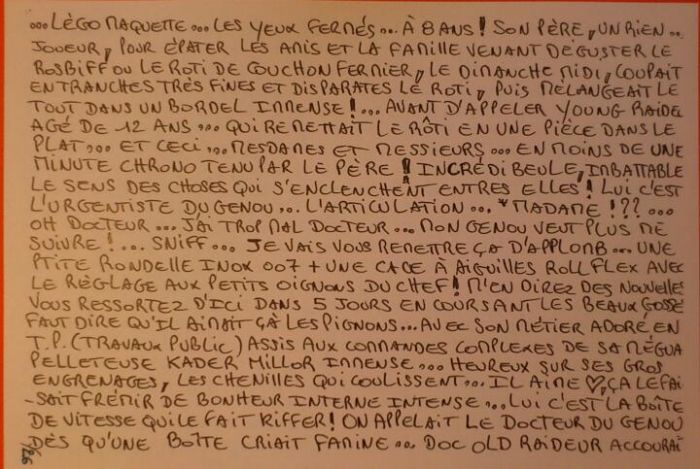 ...LÉGO MAQUETTE...LES YEUX FERMÉS...À 8 ANS! SON PÈRE, UN RIEN..
JOUEUR, POUR ÉPATER LES AMIS ET LA FAMILLE VENANT DÉGUSTER LE
ROSBIFF OU LE ROTI DE COUCHON FERMIER, LE DIMANCHE MIDI, COUPAIT
EN TRANCHES TRÈS FINES ET DISPARATES LE ROTI, PUIS MÉLANGEAIT LE
TOUT DANS UN BORDEL IMMENSE!... AVANT D'APPELER YOUNG RAIDEL
AGÉ DE 12 ANS... QUI REMETTAIT LE RÔTI EN UNE PIÈCE DANS LE
PLAT... ET CECI... MESDAMES ET MESSIEURS... EN MOINS DE UNE
MINUTE CHRONO TENU PAR LE PÈRE! INCRÉDIBEULE, IMBATTABLE
LE SENS DES CHOSES QUI S'ENCLENCHENT ENTRES ELLES! LUI C'EST
L'URGENTISTE DU GENOU... L'ARTICULATION... "MADAME!??...
OH DOCTEUR... J'AI TROP MAL DOCTEUR... MON GENOU VEUT PLUS ME
SUIVRE!... SNIFF... JE VAIS VOUS REMETTRE ÇA D'APPLOMB... UNE
PTITE RONDELLE INOX 007 + UNE CAGE À AIGUILLES ROLL FLEX AVEC
LE RÉGLAGE AUX PETITS OIGNONS DU CHEF! M'EN DIREZ DES NOUVELLES
VOUS RESSORTEZ D'ICI DANS 5 JOURS EN COURSANT LES BEAUX GOSSE
FAUT DIRE QU'IL AIMAIT ÇÀ LES PIGNONS... AVEC SON MÉTIER ADORÉ EN
T.P. (TRAVAUX PUBLIC) ASSIS AUX COMMANDES COMPLEXES DE SA MÉGUA
PELLETEUSE KADER MILLOR IMMENSE... HEUREUX SUR SES GROS
ENGRENAGES, LES CHENILLES QUI COULISSENT... IL AIME ♡, ÇA LE FAI
-SAIT FRÉMIR DE BONHEUR INTERNE INTENSE... LUI C'EST LA BOÎTE
DE VITESSE QUI LE FAIT KIFFER! ON APPELAIT LE DOCTEUR DU GENOU
DÈS QU'UNE BOÎTE CRIAIT FAMINE... DOC OLD RAIDEUR ACCOURAI